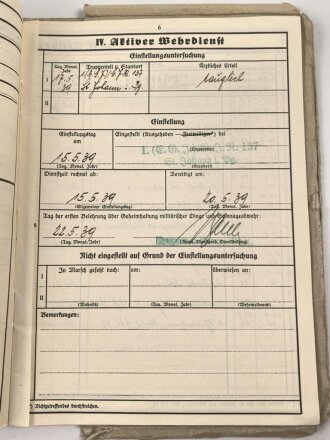 6
IV. Aktiver Wehrdienst
Einstellungsuntersuchung
Tag, Monat, Jahr
Truppenteil u. Standort
Ärztliches Urteil
I
17.5.
39
St. Johann i. Pg.
tauglich
II
Einstellung
Einstellungstag am
Eingestellt (Ausgehoben – Freiwilliger) bei
15.5.39
137
(Tag, Monat, Jahr)
St. Johann i. Pg.
Dienstzeit rechnet ab:
Vereidigt am:
15.5.39
20.5.39
(Allgemeiner Einstellungstag)
(Tag, Monat, Jahr)
Tag der ersten Belehrung über Geheimhaltung militärischer Dinge und Spionageabwehr:
22.5.39
(Tag, Monat, Jahr)
(Name, Dienstgrad, Dienststellung)
Nicht eingestellt auf Grund der Einstellungsuntersuchung
In Marsch gesetzt nach:
am:
überwiesen an:
I
II
(Wohnsitz)
(Tag, Monat, Jahr)
(Wehrmeldeamt)
Bemerkungen:
*) Nichtzutreffendes durchstreichen.